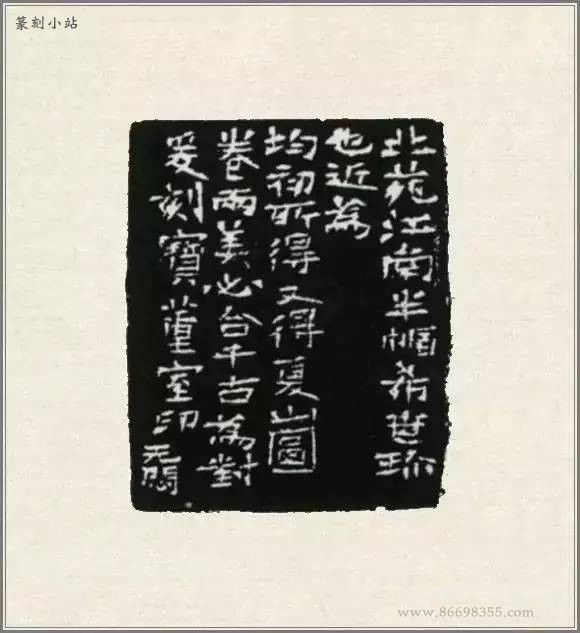 篆刻小站
北苑江南半幅希世珎
也近為
均初所得又得夏山圖
卷兩美必合千古為對
爰刻寶董室印 无悶
www.86698355.com